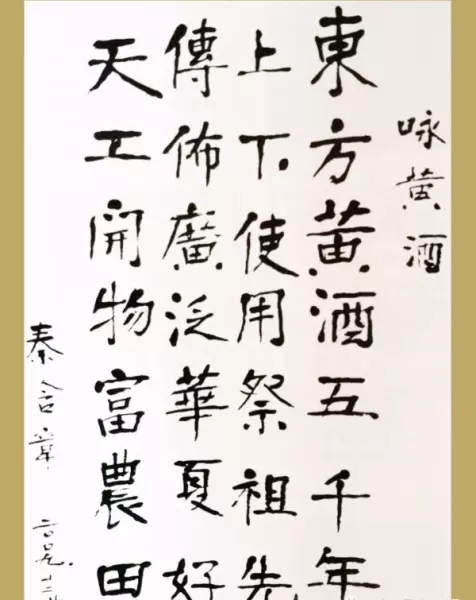 咏黄酒
東方黄酒五千年
上下使用祭祖先
傳佈廣泛華夏好
天工開物富農田
秦含章